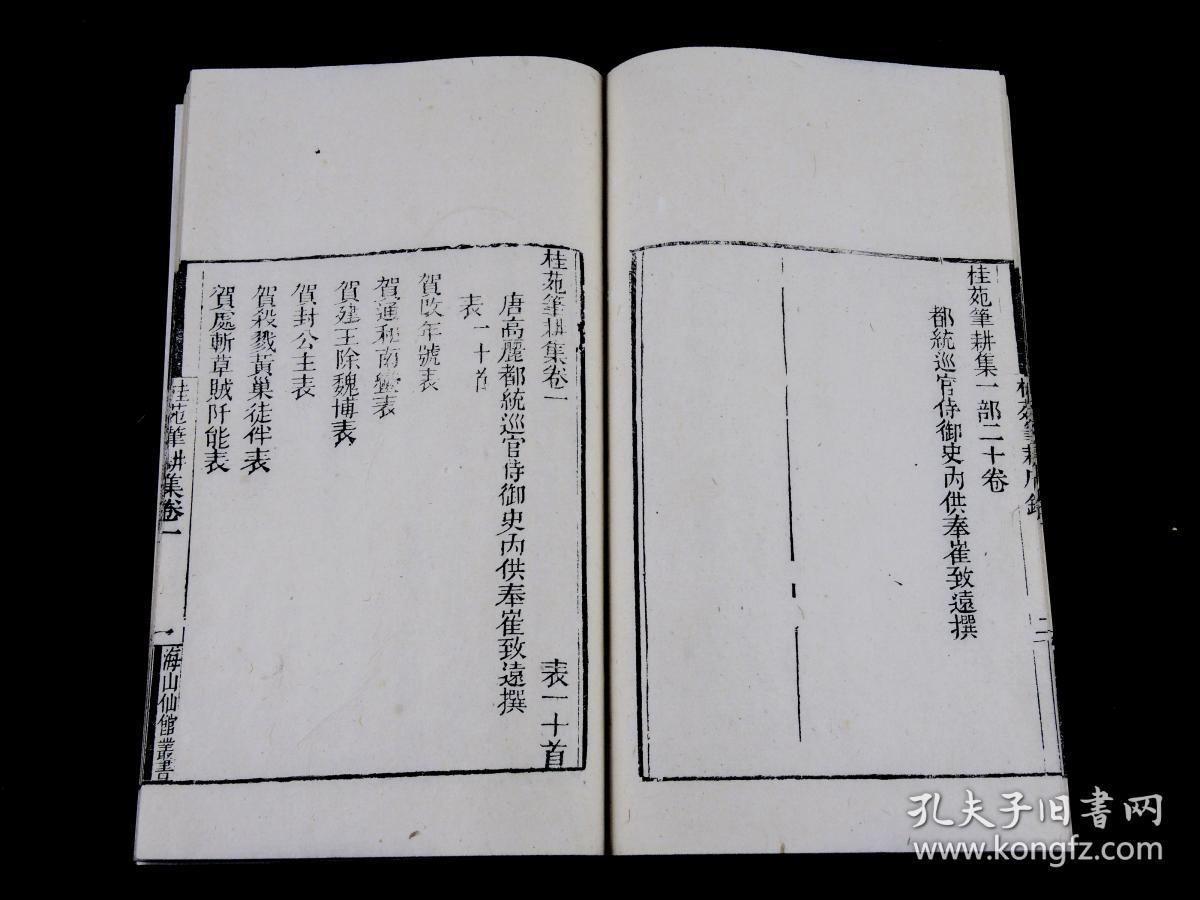 桂苑筆耕集一部二十卷
都統巡官侍御史內供奉崔致遠撰
二
桂苑筆耕集卷一
表一十首
唐高麗都統巡官侍御史內供奉崔致遠撰
表一十首
賀改年號表
賀通和南蠻表
賀建王除魏博表
賀封公主表
賀殺戮黃巢徒伴表
賀處斬草賊阡能表
桂苑筆耕集卷一
一
海山仙館叢書
孔夫子旧書网
www.kongfz.com